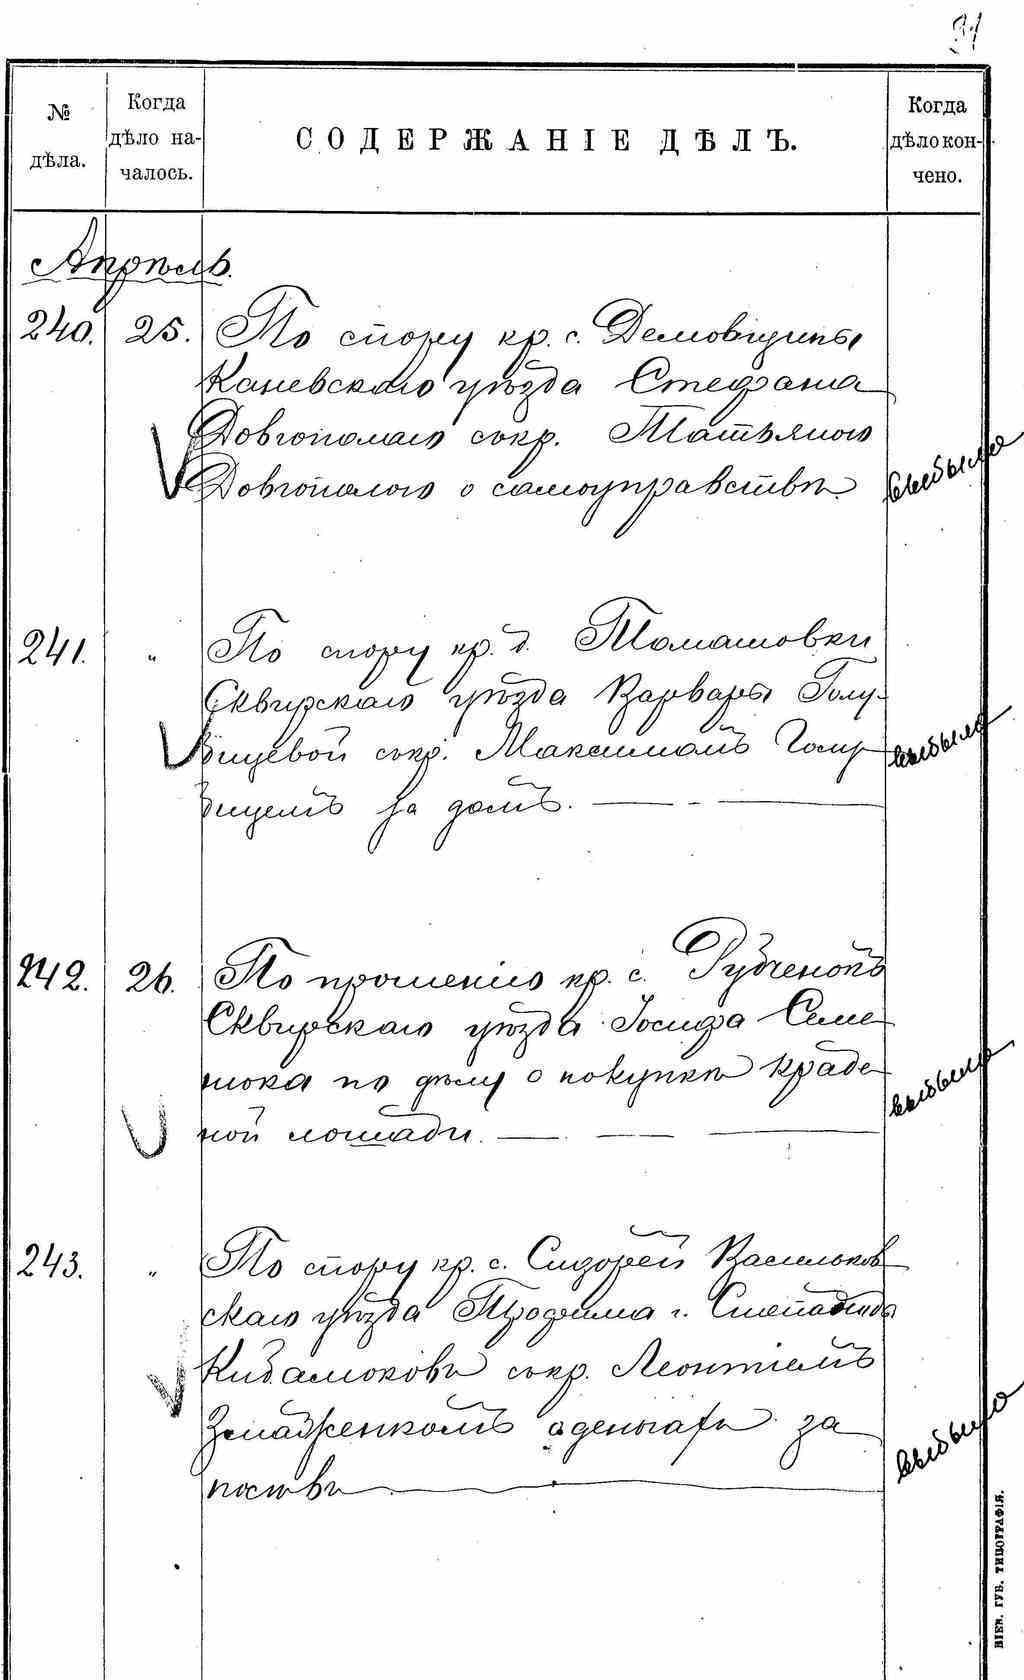 91
№
дѣла.
Когда
дѣло на-
чалось.
СОДЕРЖАНІЕ ДѢЛЪ.
Когда
дѣло кон-
чено.
Апрѣль.
240. 25. По спору кр. с.
Каневскаго уѣзда Стефана
Довгополаго съ кр. Татьяною
Довгополою о самоуправствѣ. выбыло
241. „ По спору кр. д. Томашовки
Сквирскаго уѣзда Варвары Голу-
бицевой съ кр. Максимомъ Голу-
бицемъ за домъ. — - — выбыло
242. 26. По прошенію кр. с. Рубченокъ
Сквирскаго уѣзда Іосифа Семе-
нюка по дѣлу о покупкѣ краде-
ной лошади. — — — выбыло
243. „ По спору кр. с. Васильков-
скаго уѣзда Трофима и
съ кр. Леонтіемъ
о деньгахъ за
выбыло
КІЕВ. ГУБ. ТИПОГРАФІЯ.